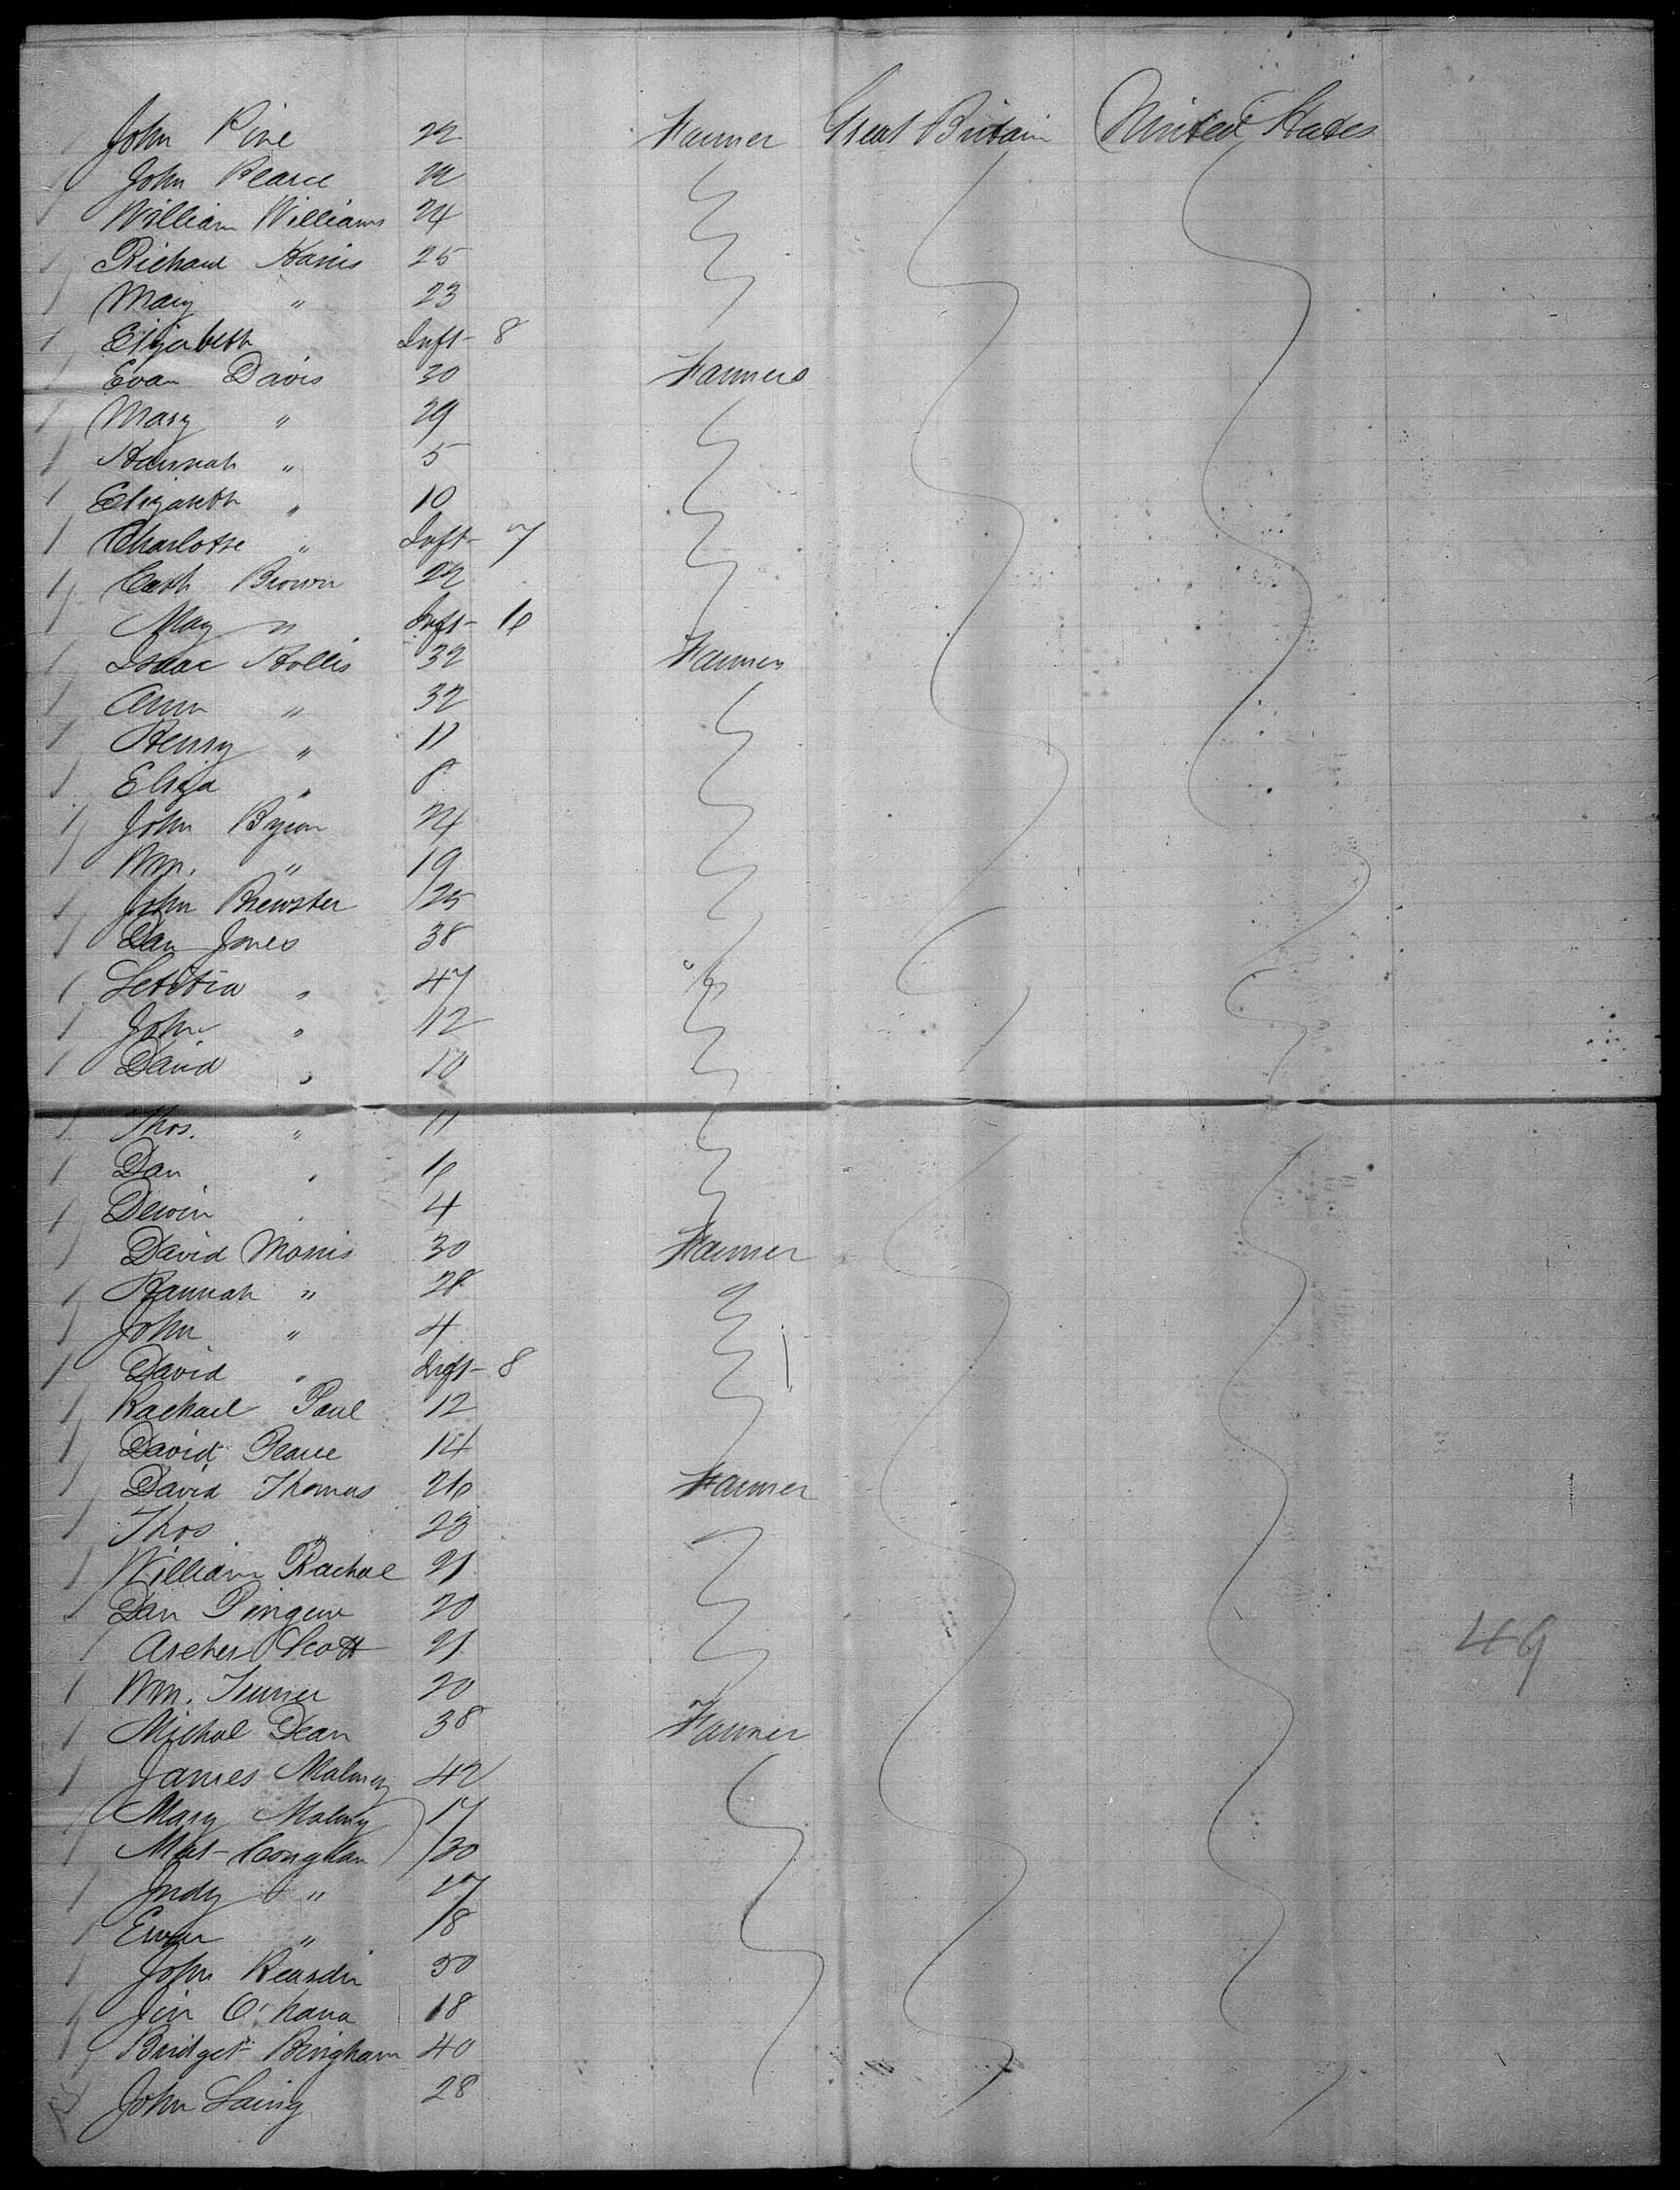 John Pine 22 Farmer Great Britain United States
John Pearce 22
William Williams 24
Richard Harris 25
Mary " 23
Elizabeth Inft - 8
Evan Davis 30 Farmers
Mary " 29
Hannah " 5
Elizabeth " 10
Charlotte " Inft - 7
Cath Brown 22
May " Inft -
Isaac Hollis 32 Farmer
Ann " 32
Henry " 11
Eliza " 8
John 24
Wm. " 19
John Brewster 25
Dan Jones 38
Letitia " 47
John " 12
David " 10
Thos. " 11
Dan "
4
David Morris 30 Farmer
Hannah " 28
John " 4
David " Inft - 8
Rachael Paul 12
David Pearce 14
David Thomas 26 Farmer
Thos " 23
William Rachael 21
Dan 20
Archer Scott 21
49
Wm. Turner 20
Michal Dean 38 Farmer
James 42
Mary 17
Coughlan 30
Judy " 17
" 18
John 30
O'Hara 18
Bridget Bingham 40
John Laing 28